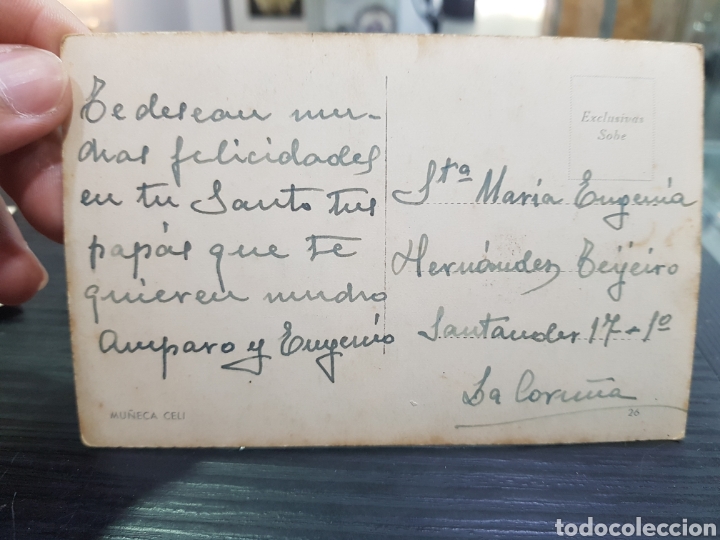 Te desean mu-
chas felicidades
en tu Santo tus
papás que te
quieren mucho
Amparo y Eugenio
MUÑECA CELI
Exclusivas
Sobe
Sta María Eugenia
Hernández Teijeiro
Santander 17-1º
La Coruña
26
todocoleccion.net